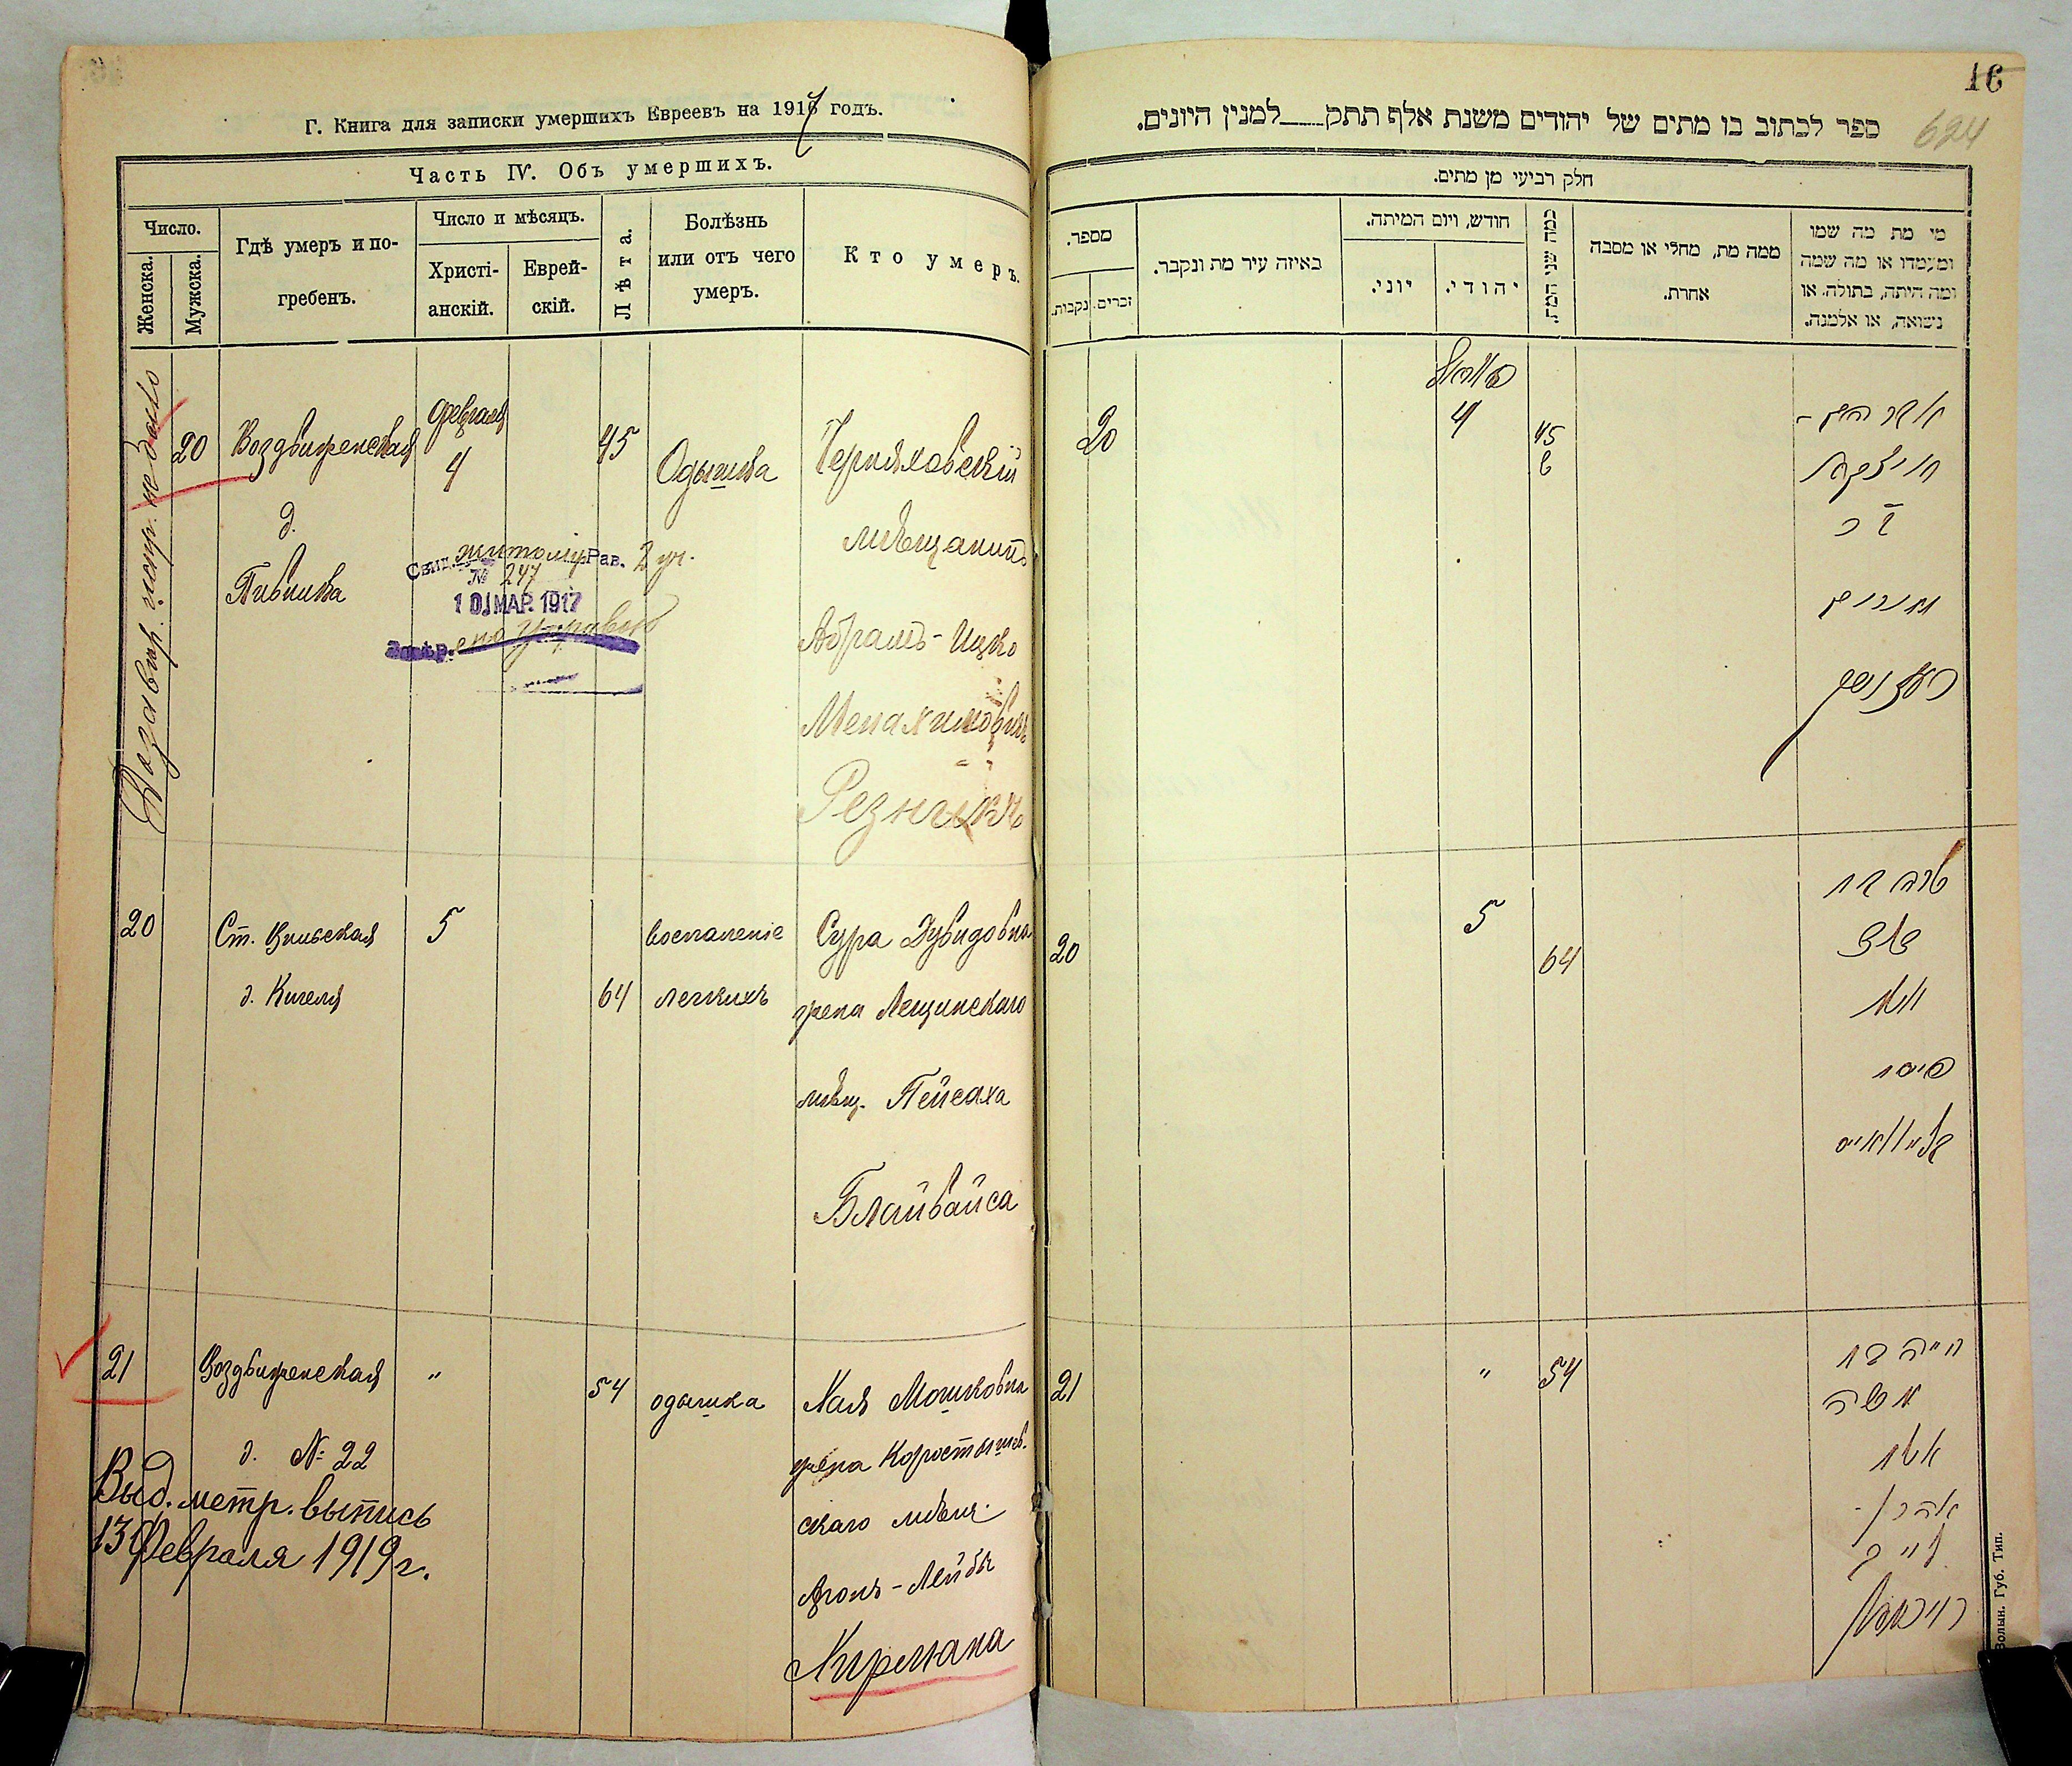 Г. Книга для записки умершихъ Евреевъ на 1917 годъ.
Часть IV. Объ умершихъ.
Число.
Женска.
Мужска.
Гдѣ умеръ и по-
гребенъ.
Число и мѣсяцъ.
Христі-
анскій.
Еврей-
скій.
Лѣта.
Болѣзнь
или отъ чего
умеръ.
Кто умеръ.
20
Воздвиженская
д.
Февраля
4
45
Одышка
Черняховскій
мѣщанинъ
Абрамъ-Ицко
Менахимовичъ
Резникъ
житомір Рав. 2 уч.
№ 247
10 МАР. 1917
20
Ст. Вильская
д. Кигеля
5
64
воспаленіе
легкихъ
Сура Дувидовна
жена Лещинскаго
мѣщ. Пейсаха
Блайвайса
21
Воздвиженская
д. № 22
"
54
одышка
Хая Мошковна
жена Коростышев-
скаго мѣщ.
Аронъ-Лейбы
Хирмана
Выд. метр. выпись
13 Февраля 1919 г.
16
624
ספר לכתוב בו מתים של יהודים משנת אלף תתק למנין היונים.
חלק רביעי מן מתים.
מספר.
נקבות.
זכרים.
באיזה עיר מת ונקבר.
חודש, ויום המיתה.
יוני.
יהודי.
כמה שני המת.
ממה מת, מחלי או מסבה
אחרת.
מי מת מה שמו
ומעמדו או מה שמה
ומה היתה, בתולה. או
נשואה, או אלמנה.
20
4
45
20
5
64
שרה בת
אשת
פיסח
21
"
54
חייה בת
משה
אשת
אהרן -
לייב
Волын. Губ. Тип.